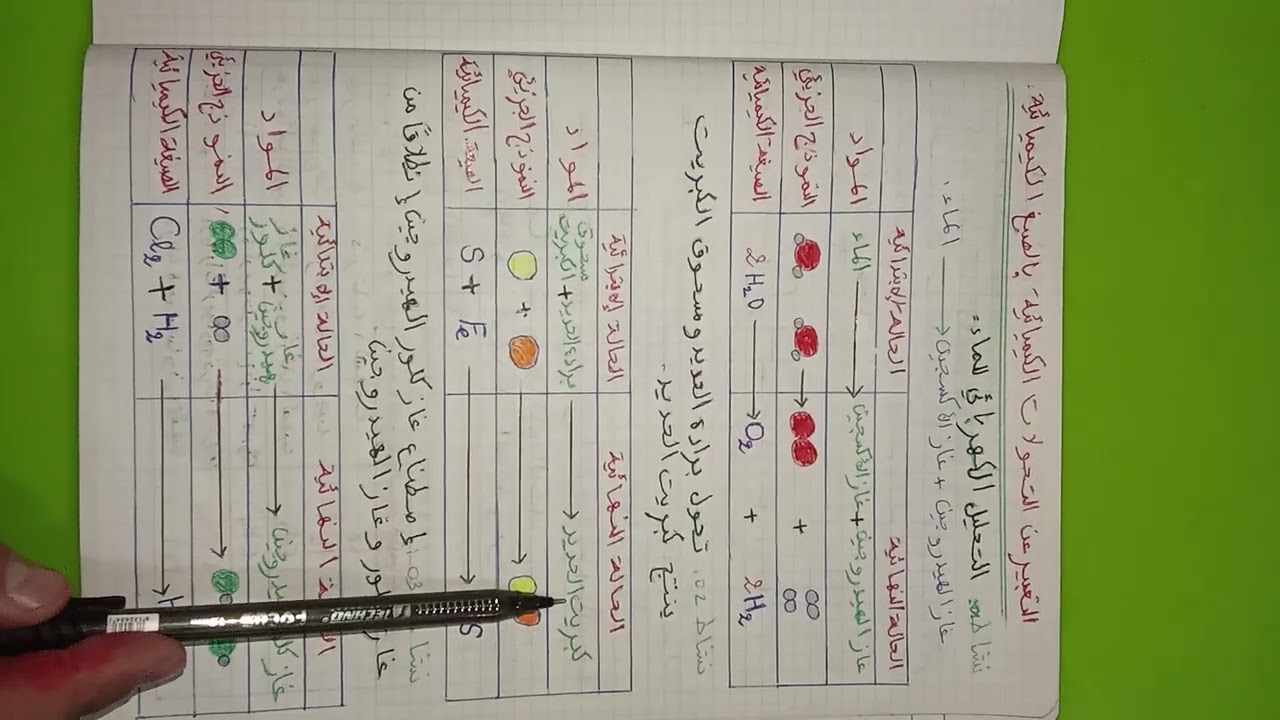 التعبير عن التحولات الكيميائية بالصيغ الكيميائية.
التحليل الكهربائي للماء:
الماء ⟶ غاز الهيدروجين + غاز الأكسجين
الحالة الإبتدائية الحالة النهائية
المواد الماء ⟶ غاز الأكسجين + غاز الهيدروجين
النموذج الجزيئي + 
الصيغة الكيميائية 2H₂O ⟶ O₂ + 2H₂
نشاط 02: تحول برادة الحديد ومسحوق الكبريت
ينتج كبريت الحديد.
الحالة الإبتدائية الحالة النهائية
المواد مسحوق الكبريت + برادة الحديد ⟶ كبريت الحديد
النموذج الجزيئي + ⟶
الصيغة الكيميائية S + Fe ⟶ S
إصطناع غاز كلور الهيدروجين إنطلاقا من
غاز وغاز الهيدروجين.
الحالة الإبتدائية النهائية
المواد غاز كلور + غاز هيدروجين ⟶ غاز
النموذج الجزيئي + ⟶
الصيغة الكيميائية Cl₂ + H₂ ⟶
TECHNO